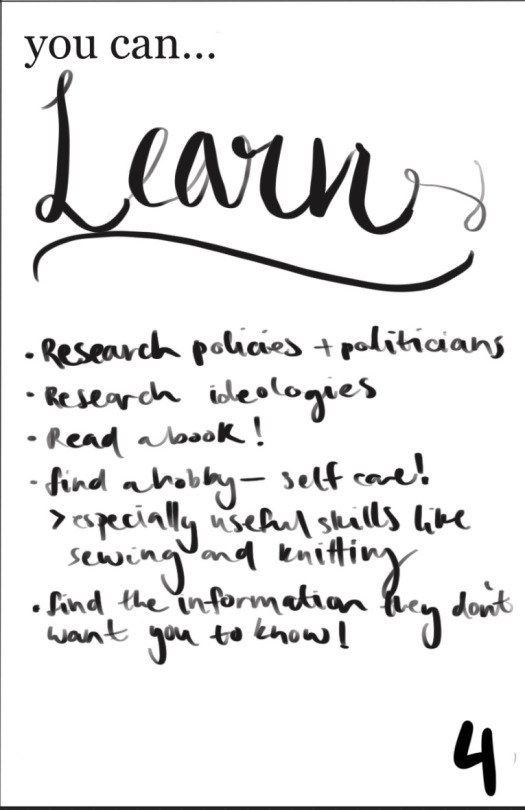 you can...
Learn
• Research policies + politicians
• Research ideologies
• Read a book!
• find a hobby — self care!
> especially useful skills like
sewing and knitting
• find the information they don't
want you to know!
4